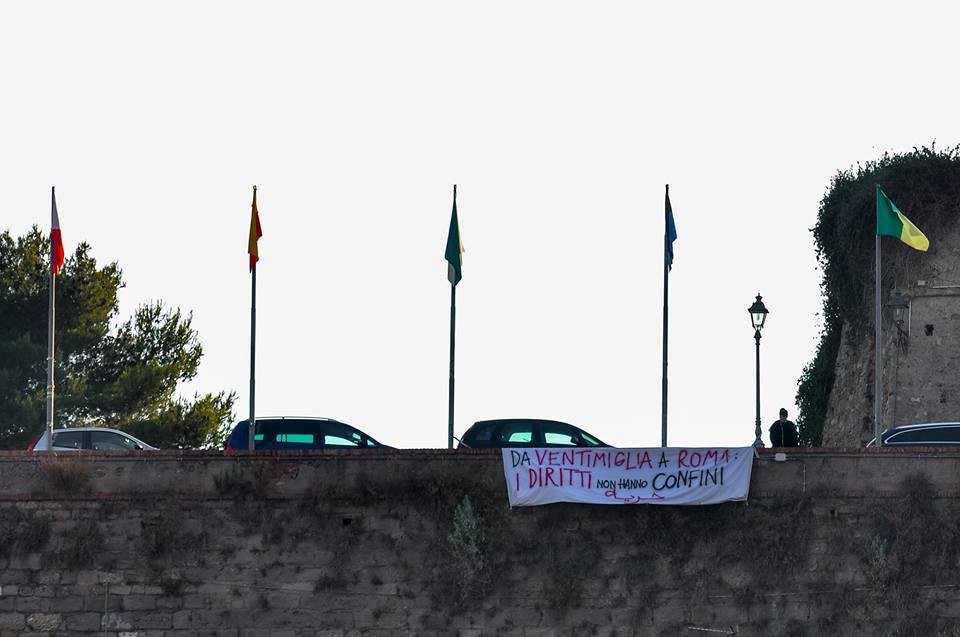 DA VENTIMIGLIA A ROMA:
I DIRITTI NON HANNO CONFINI
حرية